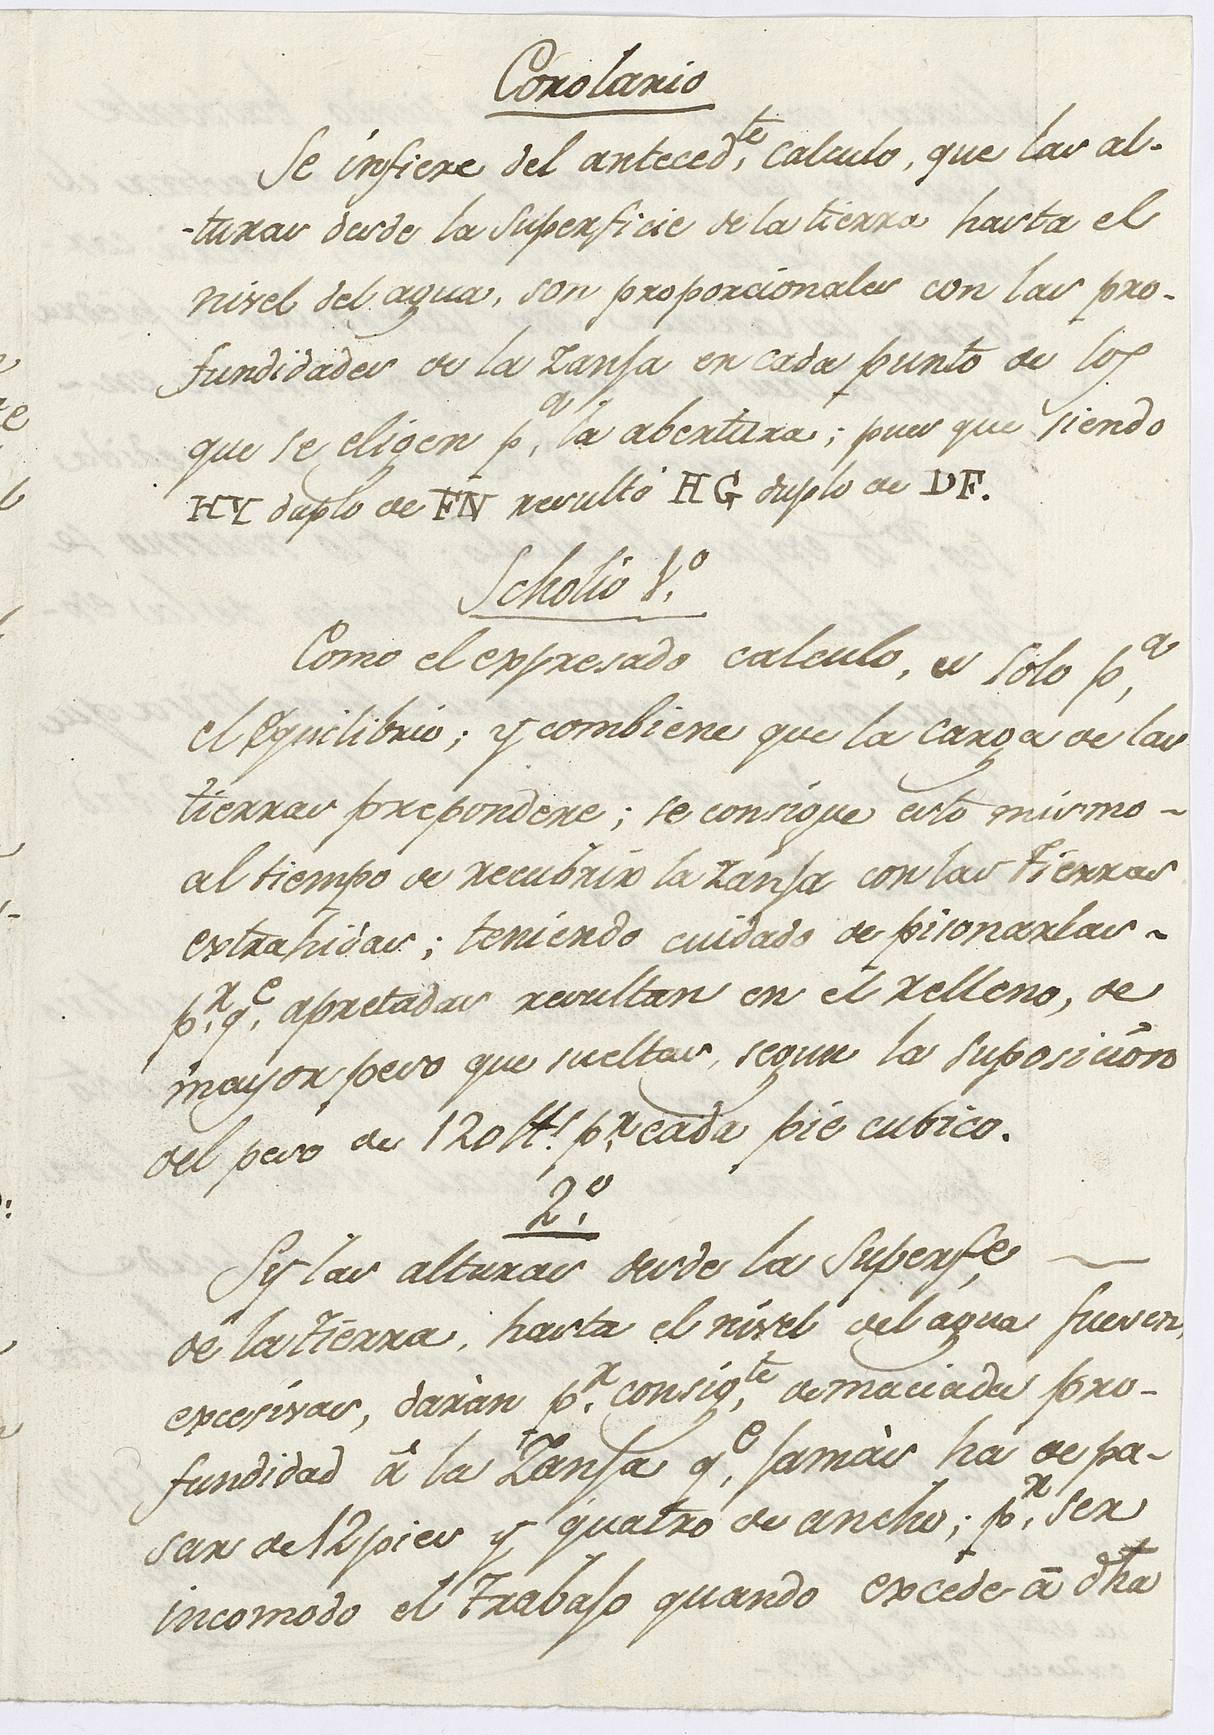 Corolario
Se infiere del anteced.te calculo, que las al-
-turas desde la superficie de la tierra hasta el
nivel del agua, son proporcionales con las pro-
fundidades de la zanja en cada punto de los
que se eligen p.a la abertura; pues que siendo
HY duplo de FN resultó HG duplo de DF.
Scholio 1.o
Como el expresado calculo, es solo p.a
el equilibrio; y combiene que la carga de las
tierras prepondere; se consigue esto mismo -
al tiempo de recubrir la zanja con las tierras
extrahidas; teniendo cuidado de pisonarlas -
p.r q.e apretadas resultan en el relleno, de
mayor peso que sueltas, segun la suposición
del peso de 120 ℔.s p.r cada pie cubico.
2.o
Sy las alturas desde la superf.e
de la tierra, hasta el nivel del agua fuesen
excesivas, daràn p.r consig.te demaciada pro-
fundidad â la Zanja q.e jamàs ha de pa-
sar de 12 pies y quatro de ancho; p.r ser
incomodo el trabajo quando excede â dha